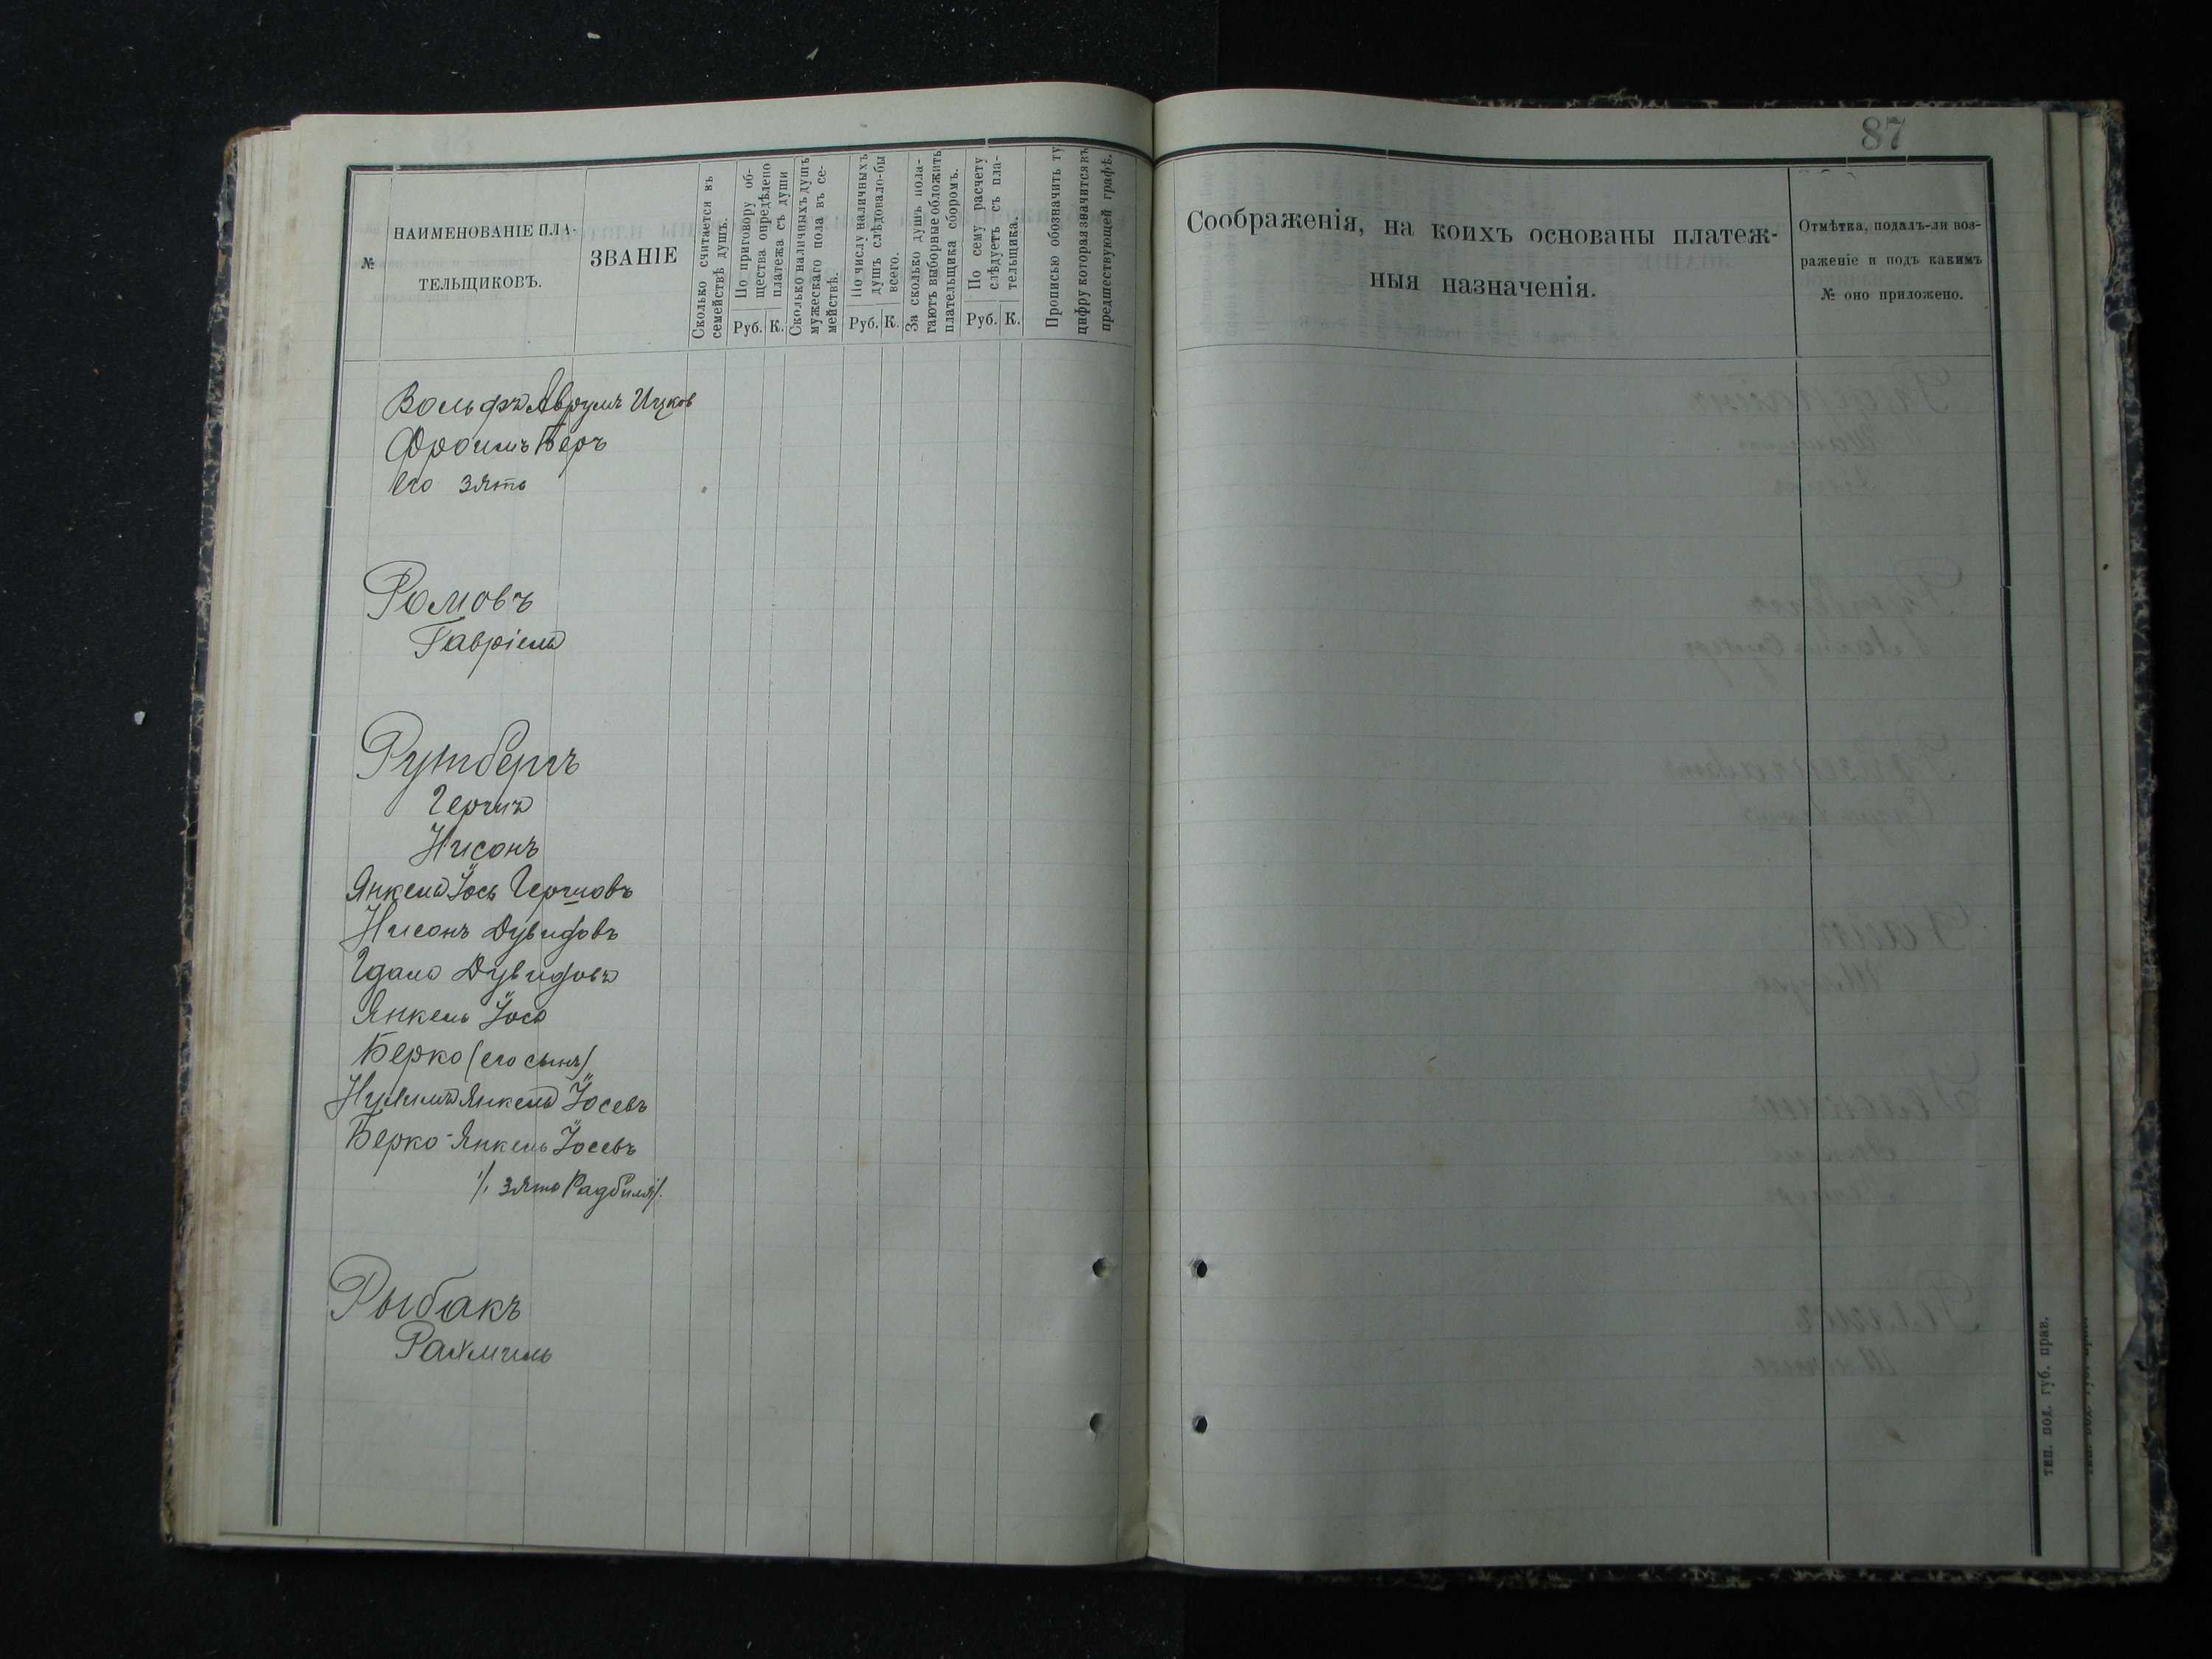 87
№
НАИМЕНОВАНІЕ ПЛА-
ТЕЛЬЩИКОВЪ.
ЗВАНІЕ
Сколько считается въ
семействѣ душъ.
По приговору об-
щества опредѣлено
платежа съ души
Руб. К.
Сколько наличныхъ душъ
мужескаго пола въ се-
мействѣ.
По числу наличныхъ
душъ слѣдовало-бы
всего.
Руб. К.
За сколько душъ пола-
гаютъ выборные обложить
плательщика сборомъ.
По сему расчету
слѣдуетъ съ пла-
тельщика.
Руб. К.
Прописью обозначить ту
цифру которая значится въ
предшествующей графѣ.
Соображенія, на коихъ основаны платеж-
ныя назначенія.
Отмѣтка, подалъ-ли воз-
раженіе и подъ какимъ
№ оно приложено.
Вольфъ Аврумъ Ицков
Фроимъ Беръ
Его зять
Ромовъ
Гавріель
Рутбергъ
Гершъ
Нисонъ
Янкель Іось Гершовъ
Нисонъ Дувидовъ
Гдаль Дувидовъ
Янкель Іось
Берко (его сынъ)
Нухимъ Янкель Іосевъ
Берко-Янкель Іосевъ
/. зять Радбиля/.
Рыбакъ
Рахмиль
тип. под. губ. прав.